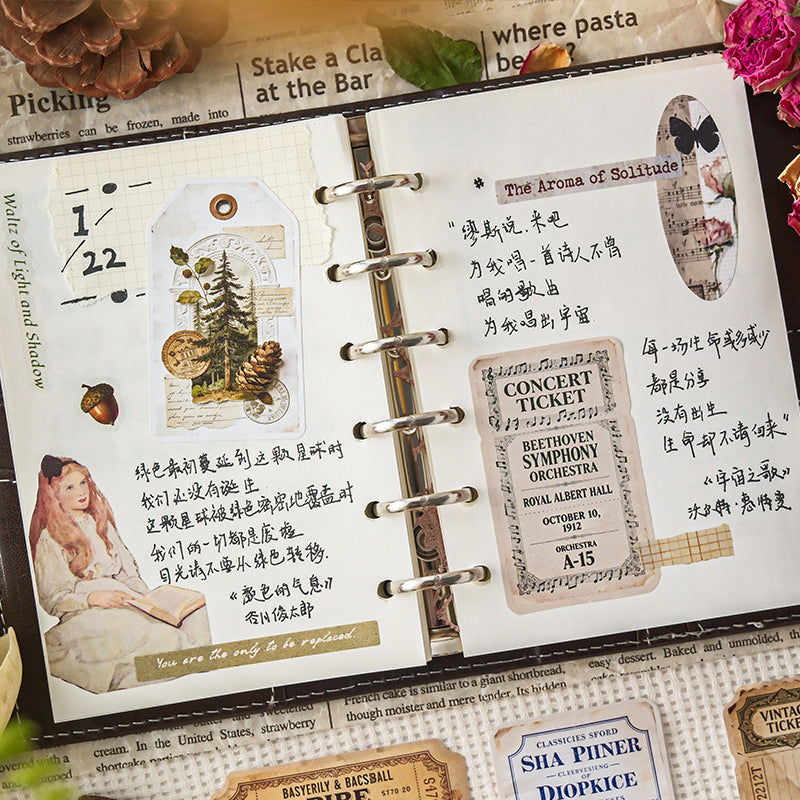 Picking
strawberries can be frozen, made into
Stake a Cla
at the Bar
where pasta
be
?
Waltz of Light and Shadow
1/
/22
绿色最初蔓延到这颗星球时
我们还没有诞生
这颗星球被绿色密密地覆盖时
我们的一切都是废墟
目光请不要从绿色转移.
《颜色的气息》
谷川俊太郎
You are the only to be replaced.
* The Aroma of Solitude
“缪斯说.来吧
为我唱一首诗人不曾
唱的歌曲
为我唱出宇宙
每一场生命或多或少
都是分享
没有出生
生命却不请自来”
《宇宙之歌》
沃尔特·惠特曼
CONCERT
TICKET
BEETHOVEN
SYMPHONY
ORCHESTRA
ROYAL ALBERT HALL
OCTOBER 10,
1912
ORCHESTRA
A-15
French cake is similar to a giant shortbread,
though moister and mere tender. Its hidden
easy dessert. Baked and unmolded, th
sweetened
cream. In the United States, strawberry
shortcake
BASYERILY & BACSBALL
STTO 20
947
CLASSICIES SFORD
SHA PIINER
CLEERVYESING
OF
DIOPKICE
VINTAG
TICKE
2212T